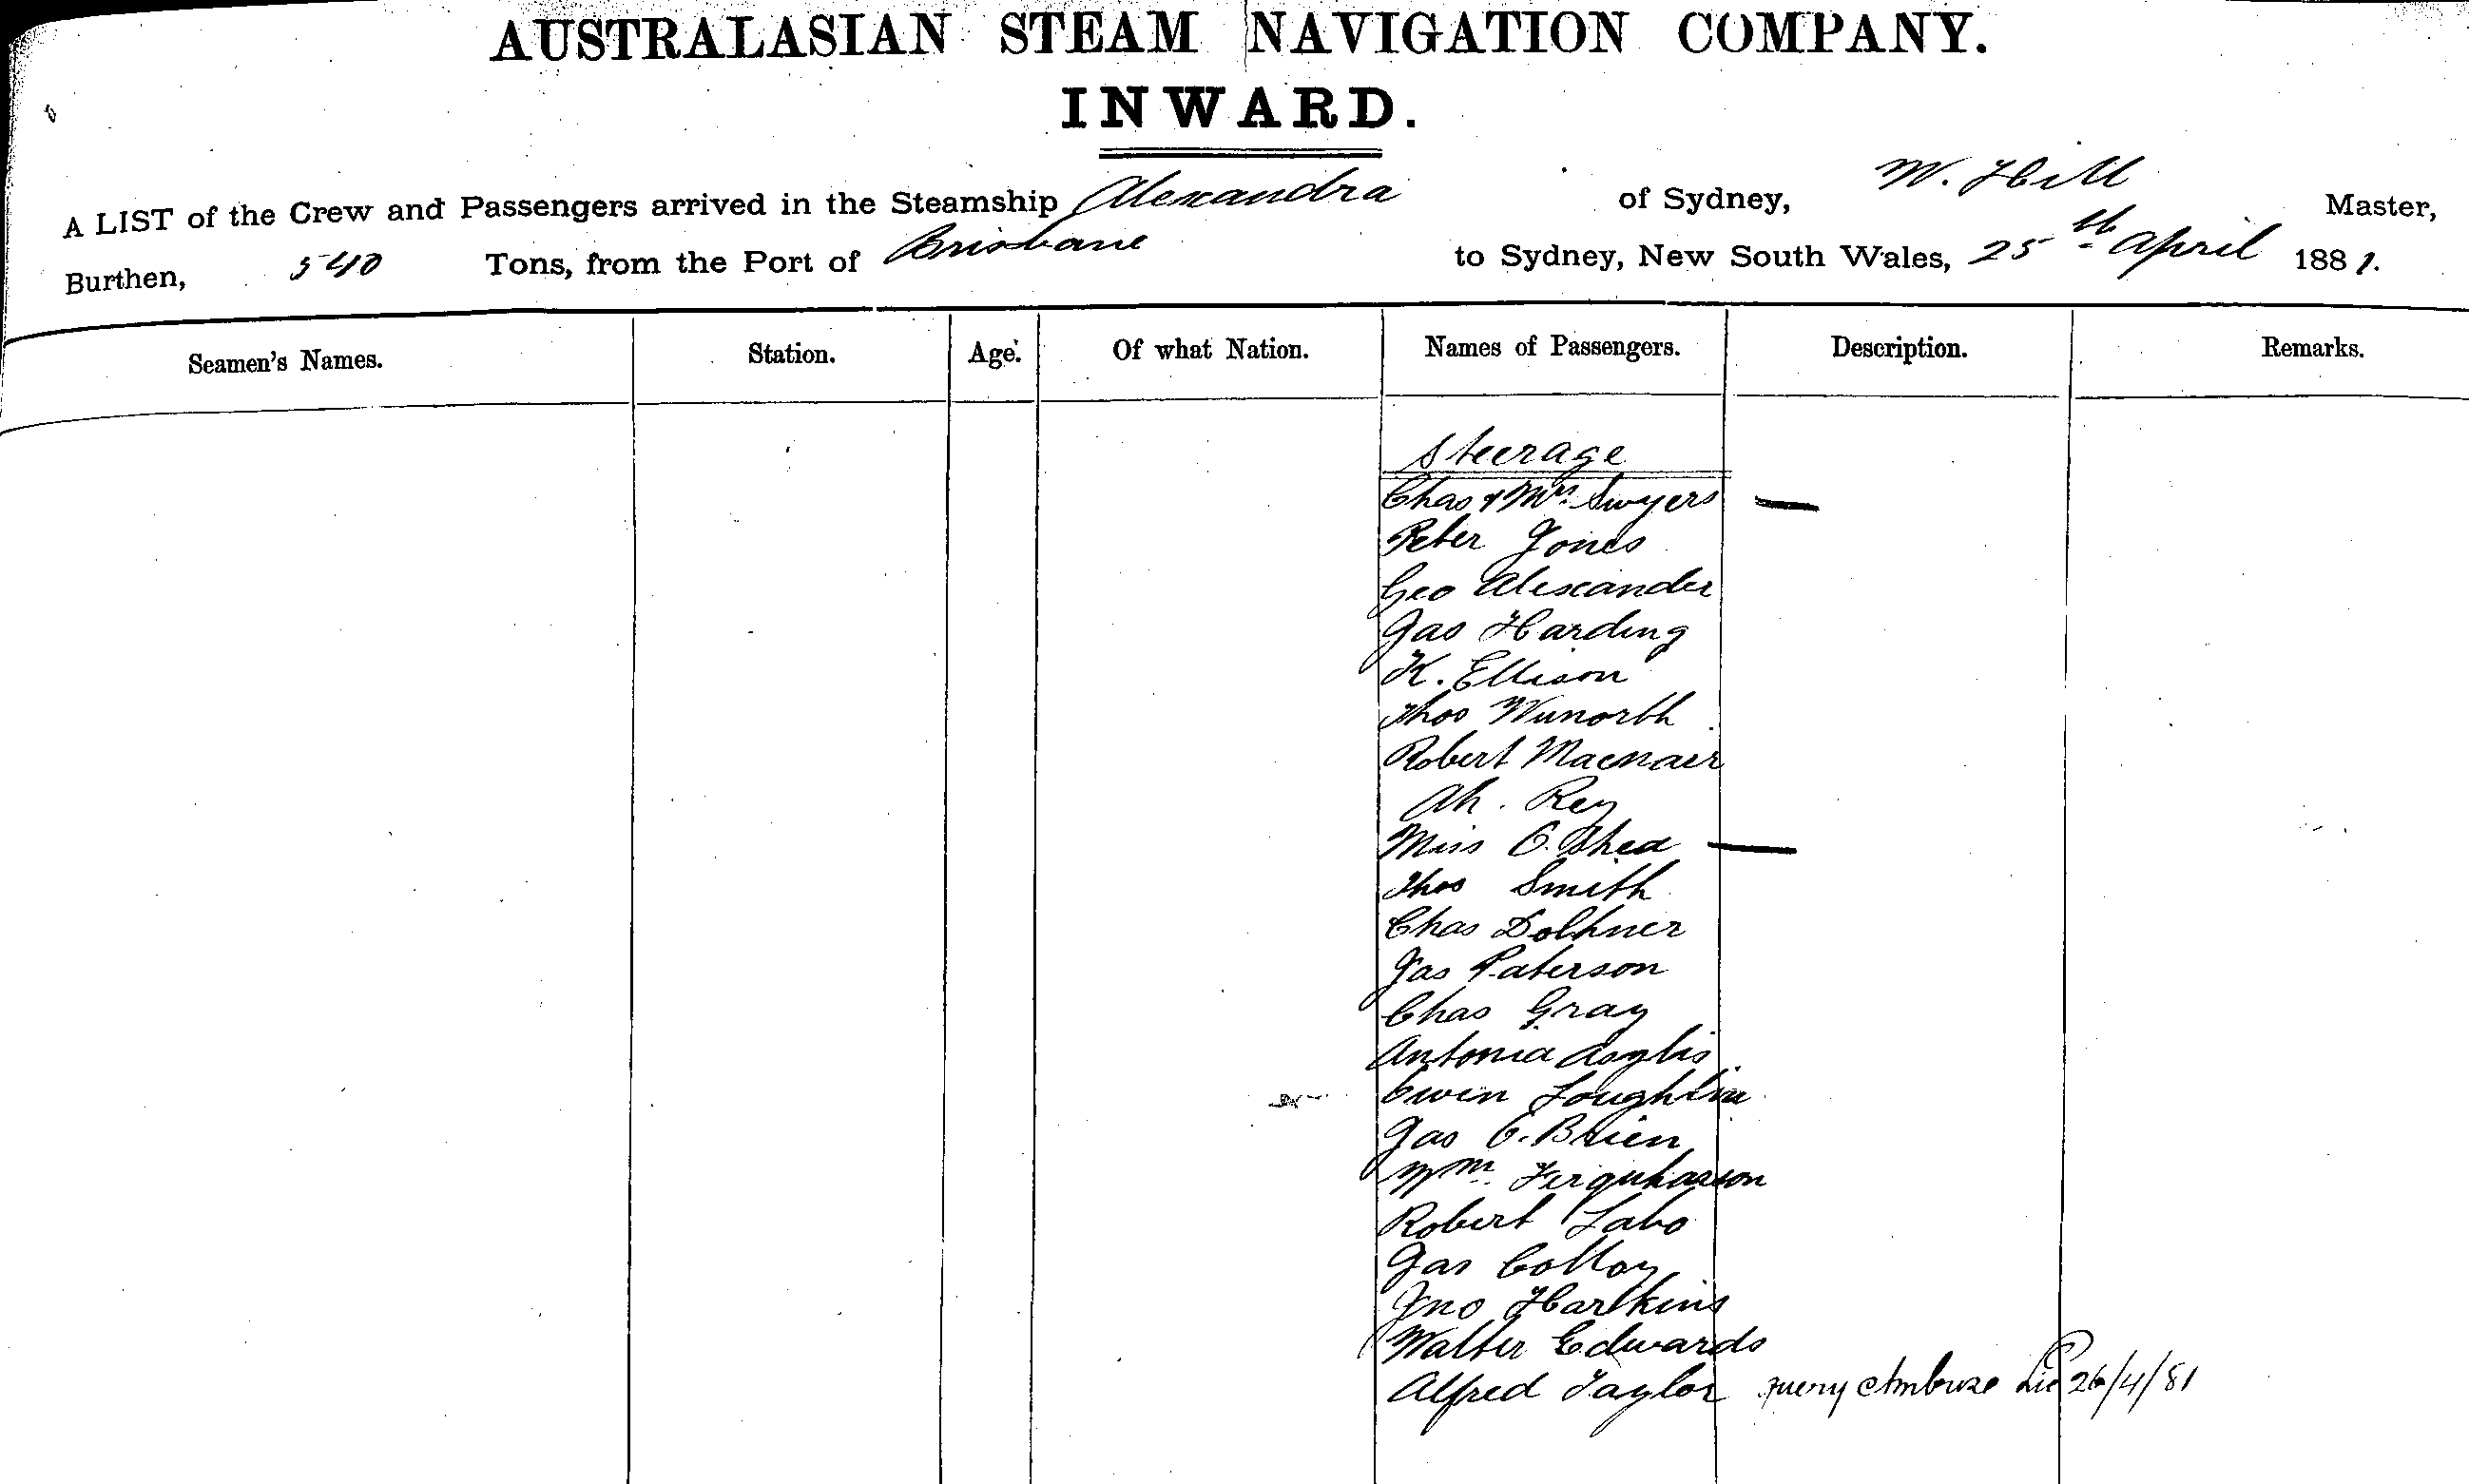 AUSTRALASIAN STEAM NAVIGATION COMPANY.
INWARD.
A LIST of the Crew and Passengers arrived in the Steamship Alexandra of Sydney, W. Hill Master,
Burthen, 540 Tons, from the Port of Brisbane to Sydney, New South Wales, 25th April 1881.
Seamen's Names. Station. Age. Of what Nation. Names of Passengers. Description. Remarks.
Steerage
Chas & Mrs. Swyers —
Peter Jones
Geo Alexander
Jas Harding
K. Ellison
Thos
Robert Macnair
Ah. Rey
Miss O. Shea —
Thos Smith
Chas
Jas Paterson
Chas Gray
Antonia
Owen Loughlin
Jas O. Brien
Wm. Ferquharson
Robert
Jas
Jno
Walter Edwards
Alfred Taylor query 26/4/81